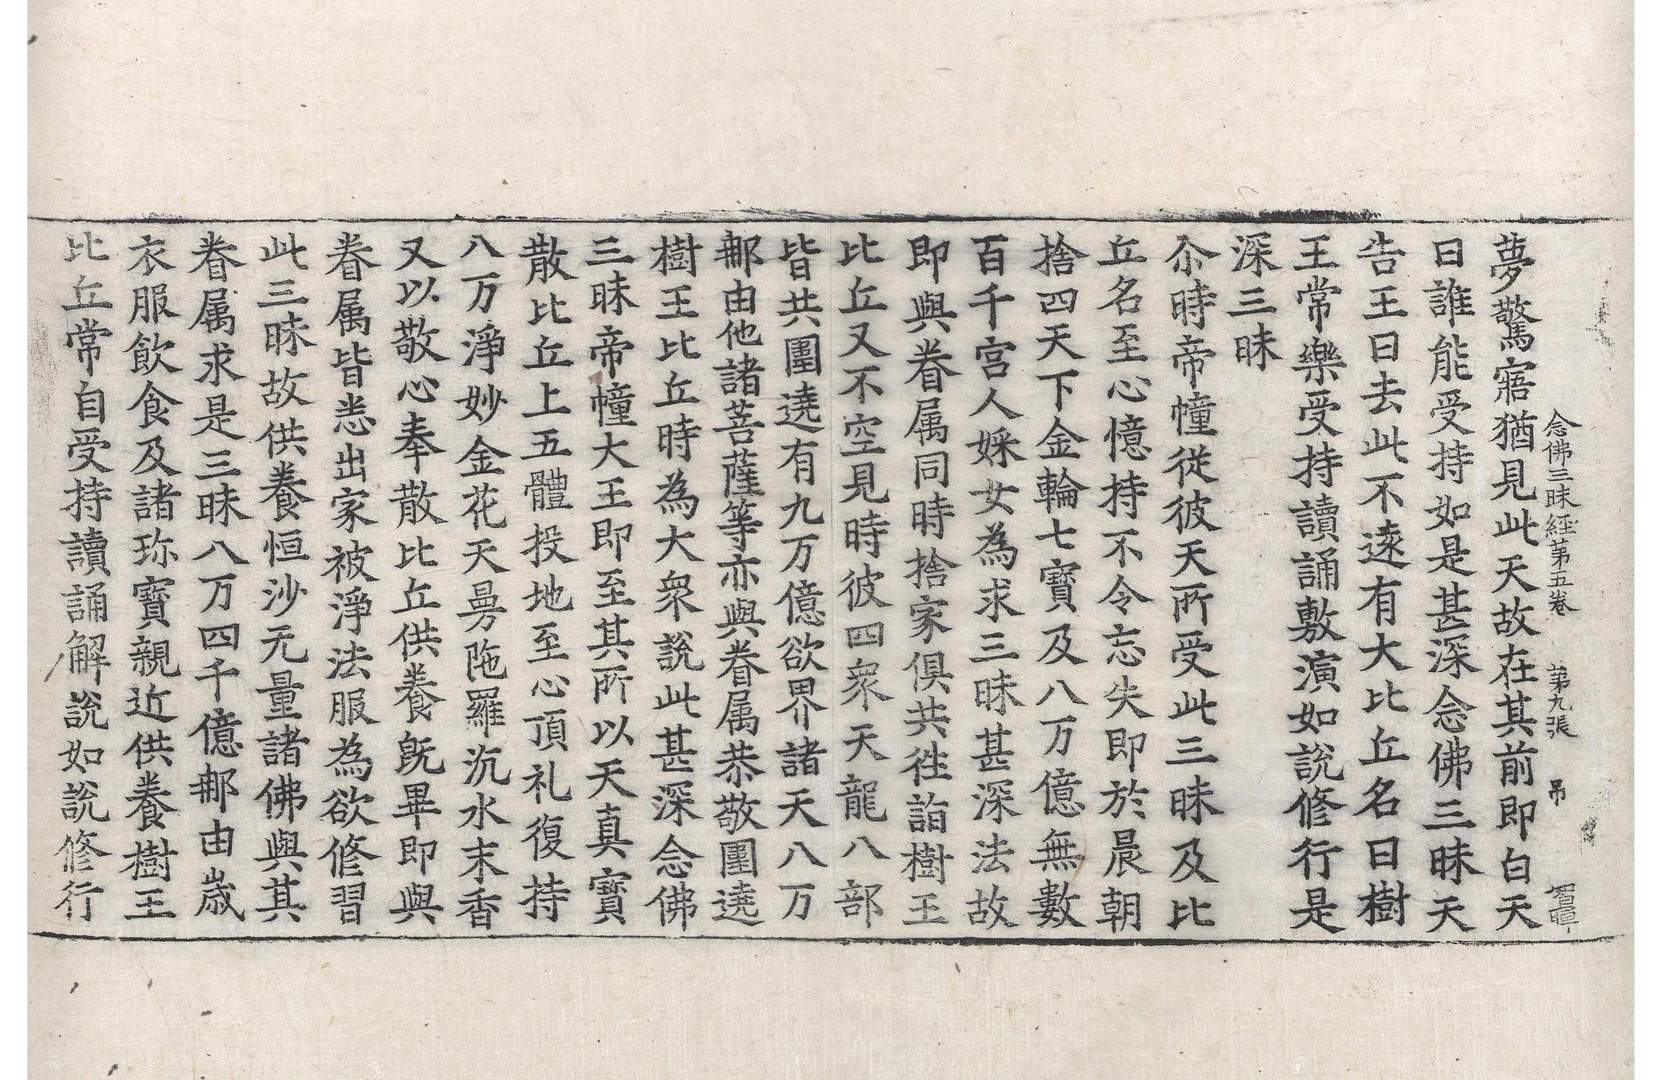 念佛三昧經第五卷　第九張　吊
夢驚寤猶見此天故在其前即白天
曰誰能受持如是甚深念佛三昧天
告王曰去此不遠有大比丘名曰樹
王常樂受持讀誦敷演如說修行是
深三昧
尒時帝幢從彼天所受此三昧及比
丘名至心憶持不令忘失即於晨朝
捨四天下金輪七寶及八万億無數
百千宮人婇女為求三昧甚深法故
即與眷属同時捨家俱共往詣樹王
比丘又不空見時彼四衆天龍八部
皆共圍遶有九万億欲界諸天八万
郍由他諸菩薩等亦與眷属恭敬圍遶
樹王比丘時為大衆說此甚深念佛
三昧帝幢大王即至其所以天真寶
散比丘上五體投地至心頂礼復持
八万淨妙金花天曼陁羅沉水末香
又以敬心奉散比丘供養旣畢即與
眷属皆悉出家被淨法服為欲修習
此三昧故供養恒沙无量諸佛與其
眷属求是三昧八万四千億郍由歲
衣服飲食及諸珎寶親近供養樹王
比丘常自受持讀誦解說如說修行